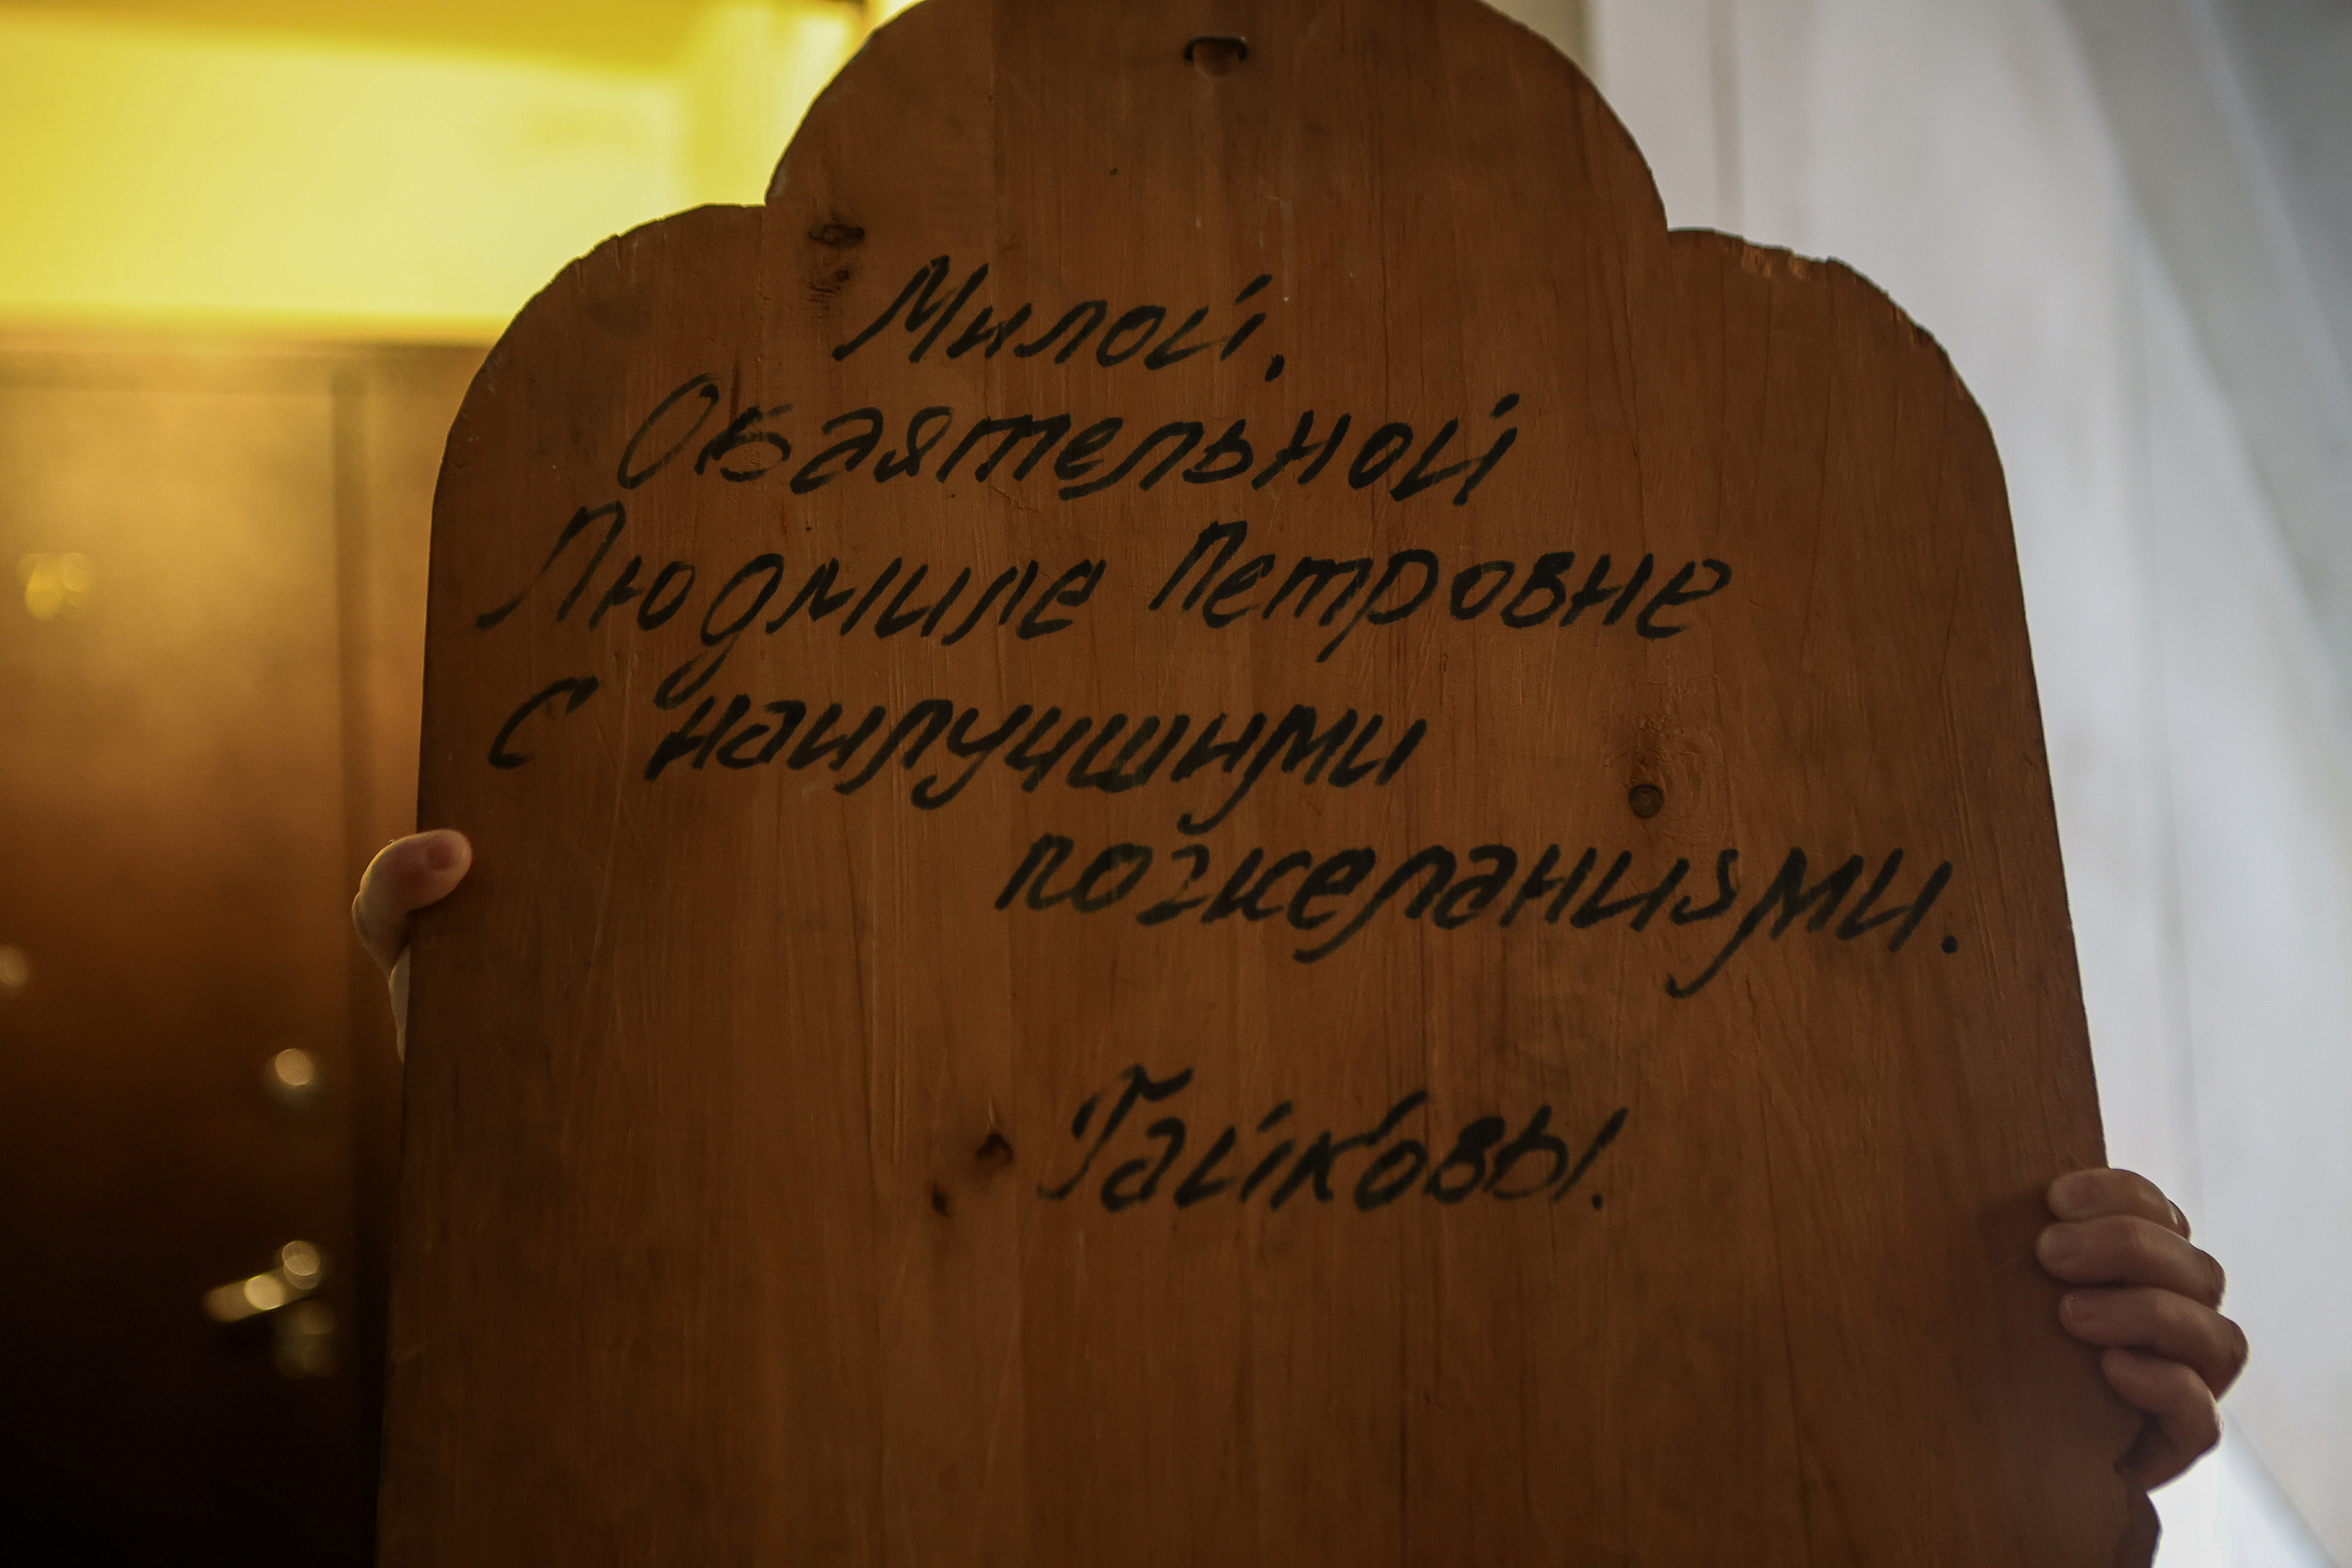 Милой,
Обаятельной
Людмиле Петровне
С наилучшими
пожеланиями.
Гайковы.